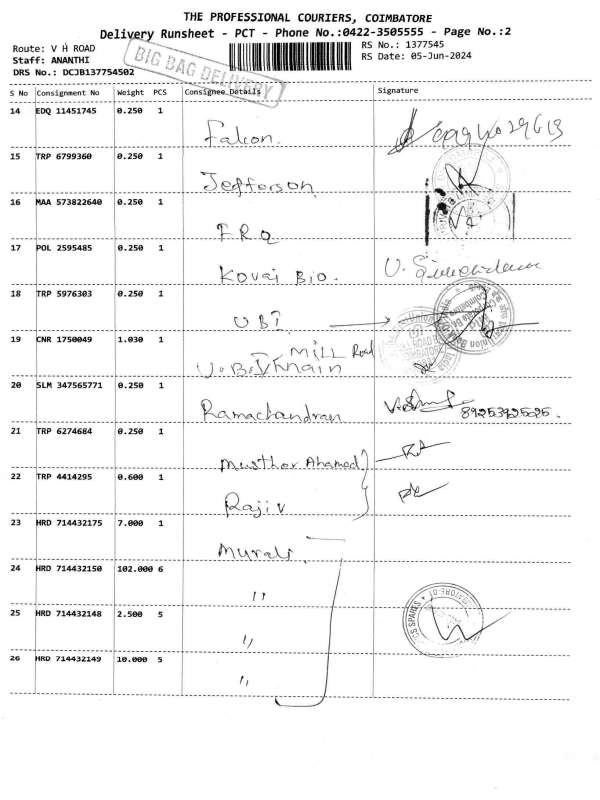 THE PROFESSIONAL COURIERS, COIMBATORE
Delivery Runsheet - PCT - Phone No.:0422-3505555 - Page No.:2
Route: V H ROAD
RS No.: 1377545
Staff: ANANTHI
RS Date: 05-Jun-2024
DRS No.: DCJB137754502
BIG BAG DELIVERY
S No Consignment No Weight PCS Consignee Details Signature
14 EDQ 11451745 0.250 1
Falcon.
15 TRP 6799360 0.250 1
Jefferson
16 MAA 573822640 0.250 1
FRQ
17 POL 2595485 0.250 1
Kovai Bio.
18 TRP 5976303 0.250 1
UBI
19 CNR 1750049 1.030 1
MILL Road
U.B.I main
20 SLM 347565771 0.250 1
Ramachandran
89253925025.
21 TRP 6274684 0.250 1
Musthar Ahamed
22 TRP 4414295 0.600 1
Rajiv
23 HRD 714432175 7.000 1
Murali
24 HRD 714432150 102.000 6
"
25 HRD 714432148 2.500 5
"
26 HRD 714432149 10.000 5
"